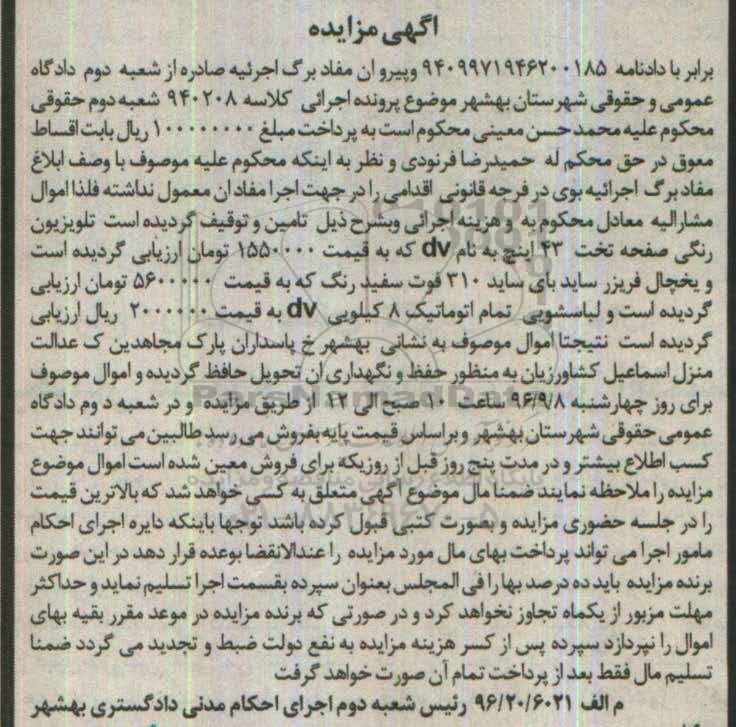 اگهی مزایده
برابر با دادنامه ۹۴۰۹۹۷۱۹۴۶۲۰۰۱۸۵ وپیرو ان مفاد برگ اجرئیه صادره از شعبه دوم دادگاه
عمومی و حقوقی شهرستان بهشهر موضوع پرونده اجرائی کلاسه ۹۴۰۲۰۸ شعبه دوم حقوقی
محکوم علیه محمد حسن معینی محکوم است به پرداخت مبلغ ۱۰۰۰۰۰۰۰۰ ریال بابت اقساط
معوق در حق محکم له حمیدرضا فرنودی و نظر به اینکه محکوم علیه موصوف با وصف ابلاغ
مفاد برگ اجرائیه بوی در فرجه قانونی اقدامی را در جهت اجرا مفاد ان معمول نداشته فلذا اموال
مشارالیه معادل محکوم به و هزینه اجرائی وبشرح ذیل تامین و توقیف گردیده است تلویزیون
رنگی صفحه تخت ۴۳ اینچ به نام dv که به قیمت ۱۵۵۰۰۰۰ تومان ارزیابی گردیده است
و یخچال فریزر ساید بای ساید ۳۱۰ فوت سفید رنگ که به قیمت ۵۶۰۰۰۰۰ تومان ارزیابی
گردیده است و لباسشویی تمام اتوماتیک ۸ کیلویی dv به قیمت ۲۰۰۰۰۰۰ ریال ارزیابی
گردیده است نتیجتا اموال موصوف به نشانی بهشهر خ پاسداران پارک مجاهدین ک عدالت
منزل اسماعیل کشاورزیان به منظور حفظ و نگهداری ان تحویل حافظ گردیده و اموال موصوف
برای روز چهارشنبه ۹۶/۹/۸ ساعت ۱۰ صبح الی ۱۲ از طریق مزایده و در شعبه دوم دادگاه
عمومی حقوقی شهرستان بهشهر و براساس قیمت پایه بفروش می رسد طالبین می توانند جهت
کسب اطلاع بیشتر و در مدت پنج روز قبل از روزیکه برای فروش معین شده است اموال موضوع
مزایده را ملاحظه نمایند ضمنا مال موضوع اگهی متعلق به کسی خواهد شد که بالاترین قیمت
را در جلسه حضوری مزایده و بصورت کتبی قبول کرده باشد توجها باینکه دایره اجرای احکام
مامور اجرا می تواند پرداخت بهای مال مورد مزایده را عندالانقضا بوعده قرار دهد در این صورت
برنده مزایده باید ده درصد بها را فی المجلس بعنوان سپرده بقسمت اجرا تسلیم نماید و حداکثر
مهلت مزبور از یکماه تجاوز نخواهد کرد و در صورتی که برنده مزایده در موعد مقرر بقیه بهای
اموال را نپردازد سپرده پس از کسر هزینه مزایده به نفع دولت ضبط و تجدید می گردد ضمنا
تسلیم مال فقط بعد از پرداخت تمام آن صورت خواهد گرفت
م الف ۹۶/۲۰/۶۰۲۱ رئیس شعبه دوم اجرای احکام مدنی دادگستری بهشهر